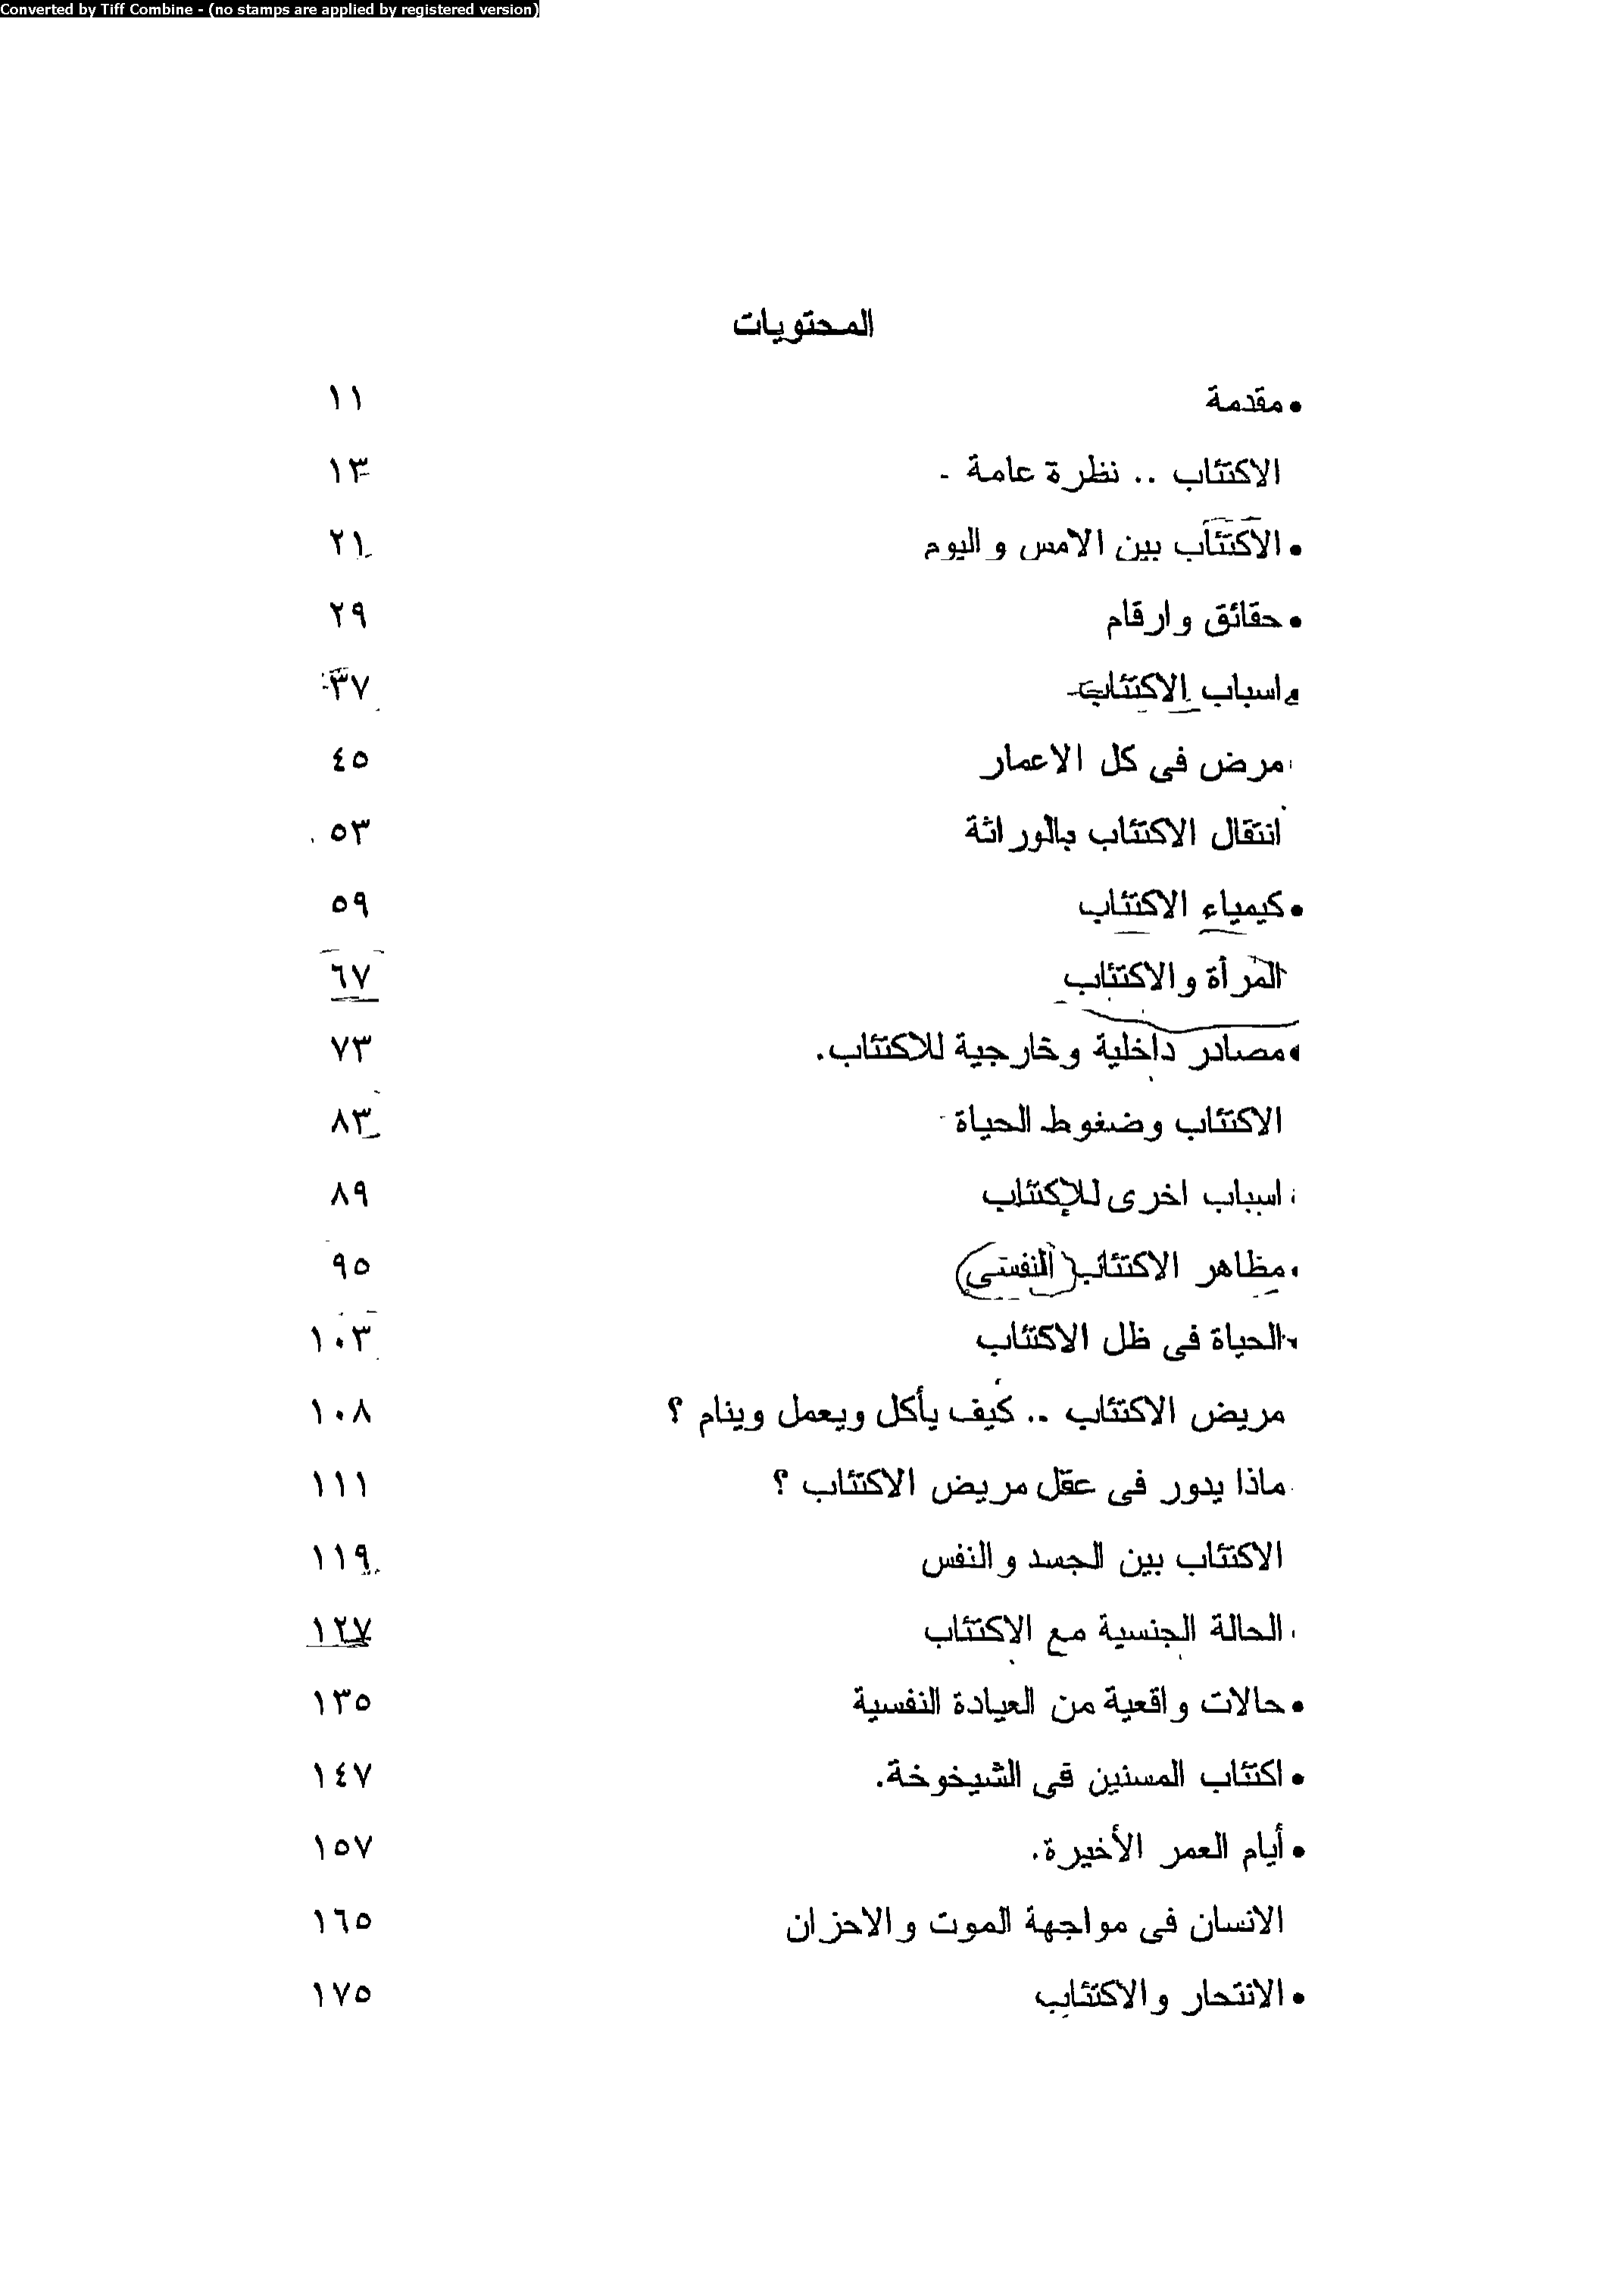 Converted by Tiff Combine - (no stamps are applied by registered version)
المحتويات
• مقدمة ١١
الاكتئاب .. نظرة عامة - ١٣
• الاكتئاب بين الامس واليوم ٢١
• حقائق وارقام ٢٩
• اسباب الاكتئاب ٣٧
مرض فى كل الاعمار ٤٥
انتقال الاكتئاب بالوراثة ٥٣
• كيمياء الاكتئاب ٥٩
المرأة والاكتئاب ٦٧
• مصادر داخلية وخارجية للاكتئاب. ٧٣
الاكتئاب وضغوط الحياة ٨٣
اسباب اخرى للإكتئاب ٨٩
• مظاهر الاكتئاب (النفسى) ٩٥
• الحياة فى ظل الاكتئاب ١٠٣
مريض الاكتئاب .. كيف يأكل ويعمل وينام ؟ ١٠٨
ماذا يدور فى عقل مريض الاكتئاب ؟ ١١١
الاكتئاب بين الجسد والنفس ١١٩
الحالة الجنسية مع الإكتئاب ١٢٧
• حالات واقعية من العيادة النفسية ١٣٥
• اكتئاب المسنين فى الشيخوخة. ١٤٧
• أيام العمر الأخيرة. ١٥٧
الانسان فى مواجهة الموت والاحزان ١٦٥
• الانتحار والاكتئاب ١٧٥